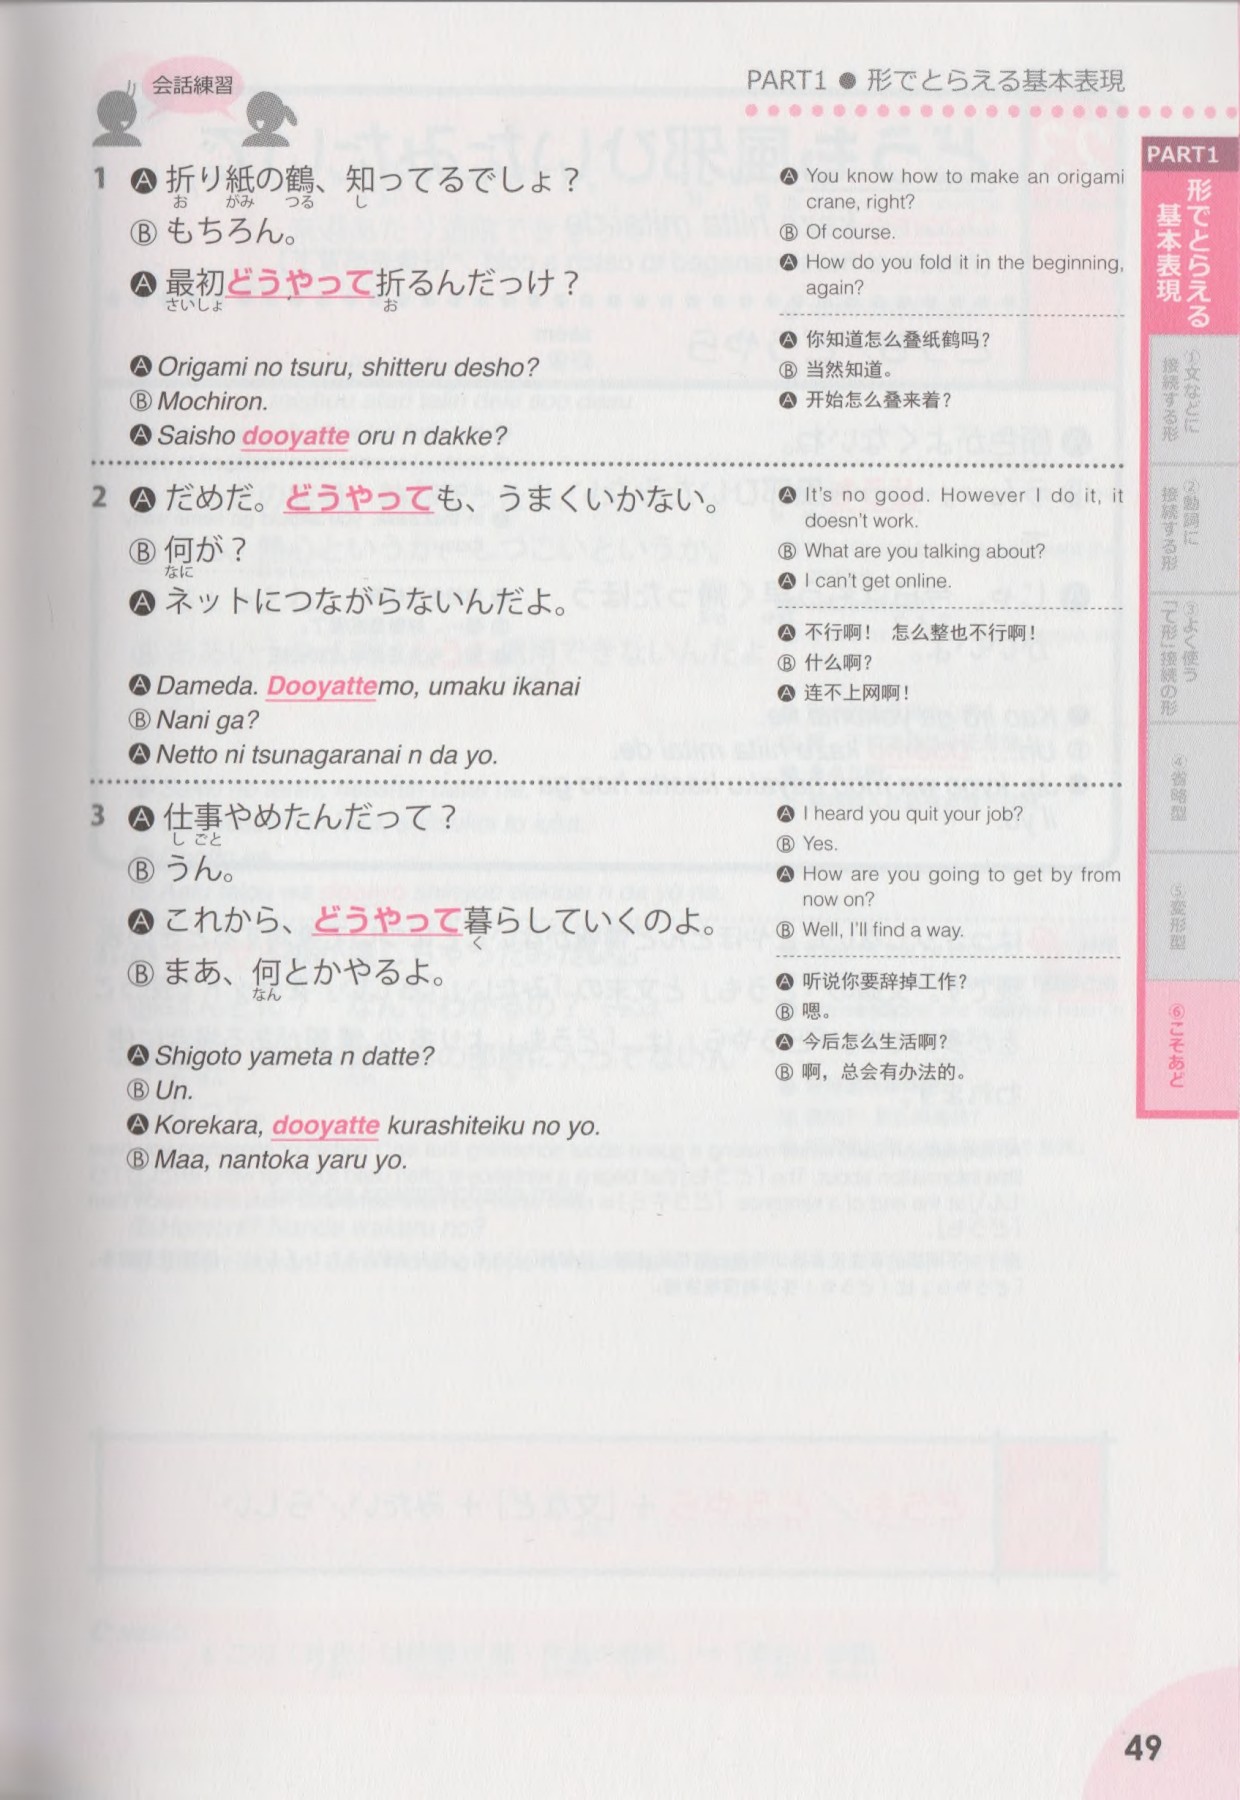 会話練習
PART1 ● 形でとらえる基本表現
1 Ⓐ 折り紙の鶴、知ってるでしょ？
お がみ つる し
Ⓑ もちろん。
Ⓐ 最初どうやって折るんだっけ？
さいしょ お
Ⓐ Origami no tsuru, shitteru desho?
Ⓑ Mochiron.
Ⓐ Saisho dooyatte oru n dakke?
Ⓐ You know how to make an origami
crane, right?
Ⓑ Of course.
Ⓐ How do you fold it in the beginning,
again?
Ⓐ 你知道怎么叠纸鹤吗？
Ⓑ 当然知道。
Ⓐ 开始怎么叠来着？
2 Ⓐ だめだ。どうやっても、うまくいかない。
Ⓑ 何が？
なに
Ⓐ ネットにつながらないんだよ。
Ⓐ Dameda. Dooyattemo, umaku ikanai
Ⓑ Nani ga?
Ⓐ Netto ni tsunagaranai n da yo.
Ⓐ It's no good. However I do it, it
doesn't work.
Ⓑ What are you talking about?
Ⓐ I can't get online.
Ⓐ 不行啊！ 怎么整也不行啊！
Ⓑ 什么啊？
Ⓐ 连不上网啊！
3 Ⓐ 仕事やめたんだって？
し ごと
Ⓑ うん。
Ⓐ これから、どうやって暮らしていくのよ。
く
Ⓑ まあ、何とかやるよ。
なん
Ⓐ Shigoto yameta n datte?
Ⓑ Un.
Ⓐ Korekara, dooyatte kurashiteiku no yo.
Ⓑ Maa, nantoka yaru yo.
Ⓐ I heard you quit your job?
Ⓑ Yes.
Ⓐ How are you going to get by from
now on?
Ⓑ Well, I'll find a way.
Ⓐ 听说你要辞掉工作？
Ⓑ 嗯。
Ⓐ 今后怎么生活啊？
Ⓑ 啊，总会有办法的。
PART1
形でとらえる
基本表現
①文などに
接続する形
②動詞に
接続する形
③よく使う
「て形」接続の形
④省略型
⑤変形型
⑥こそあど
49